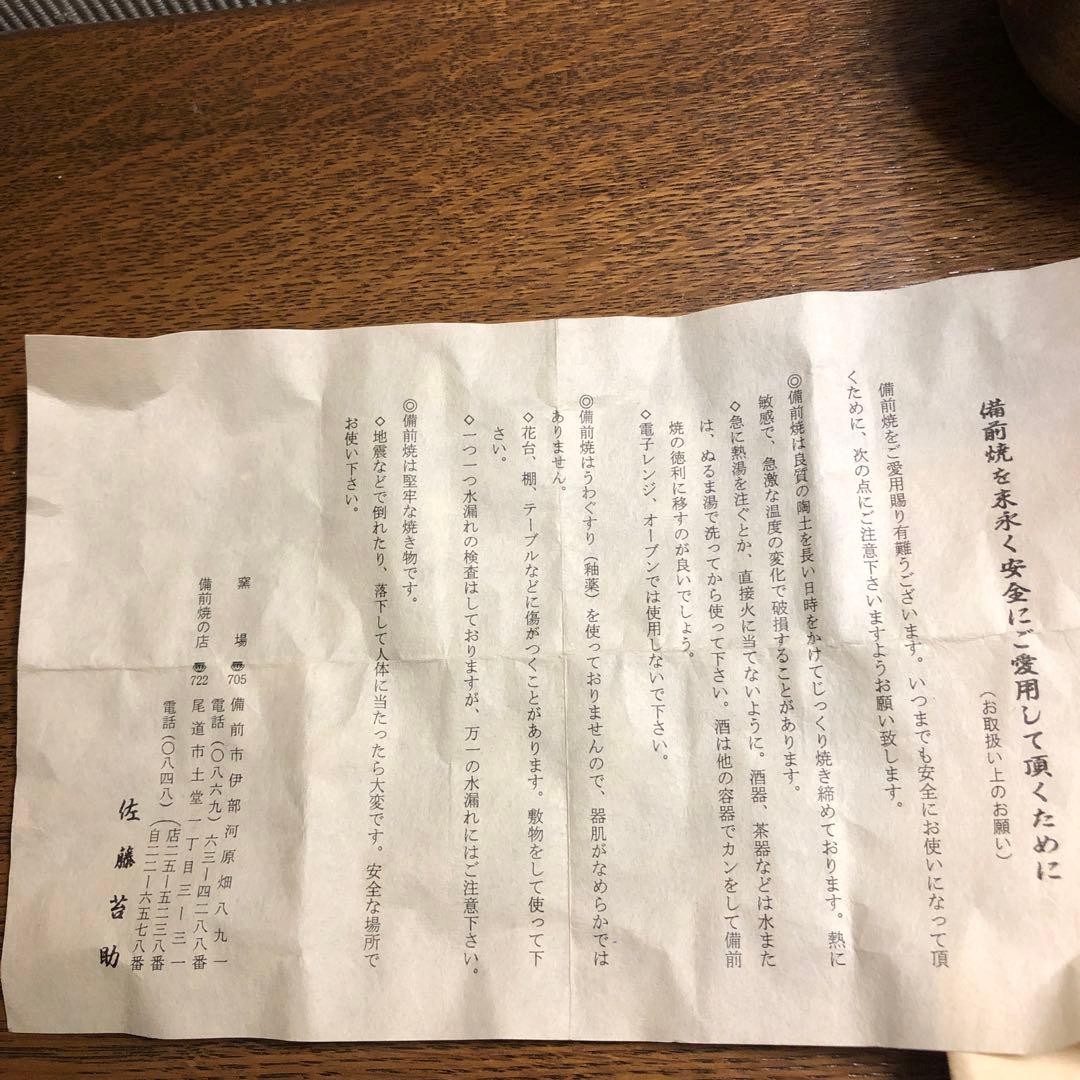 備前焼を末永く安全にご愛用して頂くために
(お取扱い上のお願い)
備前焼をご愛用賜り有難うございます。いつまでも安全にお使いになって頂
くために、次の点にご注意下さいますようお願い致します。
◎備前焼は良質の陶土を長い日時をかけてじっくり焼き締めております。熱に
敏感で、急激な温度の変化で破損することがあります。
◇急に熱湯を注ぐとか、直接火に当てないように。酒器、茶器などは水また
は、ぬるま湯で洗ってから使って下さい。酒は他の容器でカンをして備前
焼の徳利に移すのが良いでしょう。
◇電子レンジ、オーブンでは使用しないで下さい。
◎備前焼はうわぐすり(釉薬)を使っておりませんので、器肌がなめらかでは
ありません。
◇花台、棚、テーブルなどに傷がつくことがあります。敷物をして使って下
さい。
◇一つ一つ水漏れの検査はしておりますが、万一の水漏れにはご注意下さい。
◎備前焼は堅牢な焼き物です。
◇地震などで倒れたり、落下して人体に当たったら大変です。安全な場所で
お使い下さい。
窯場 〠705 備前市伊部河原畑八九一
電話(〇八六九)六三ー四二八八番
備前焼の店 〠722 尾道市土堂一丁目三ー三一
電話(〇八四八)(店二五ー五二三八番
(自二二ー六五七八番
佐藤苔助